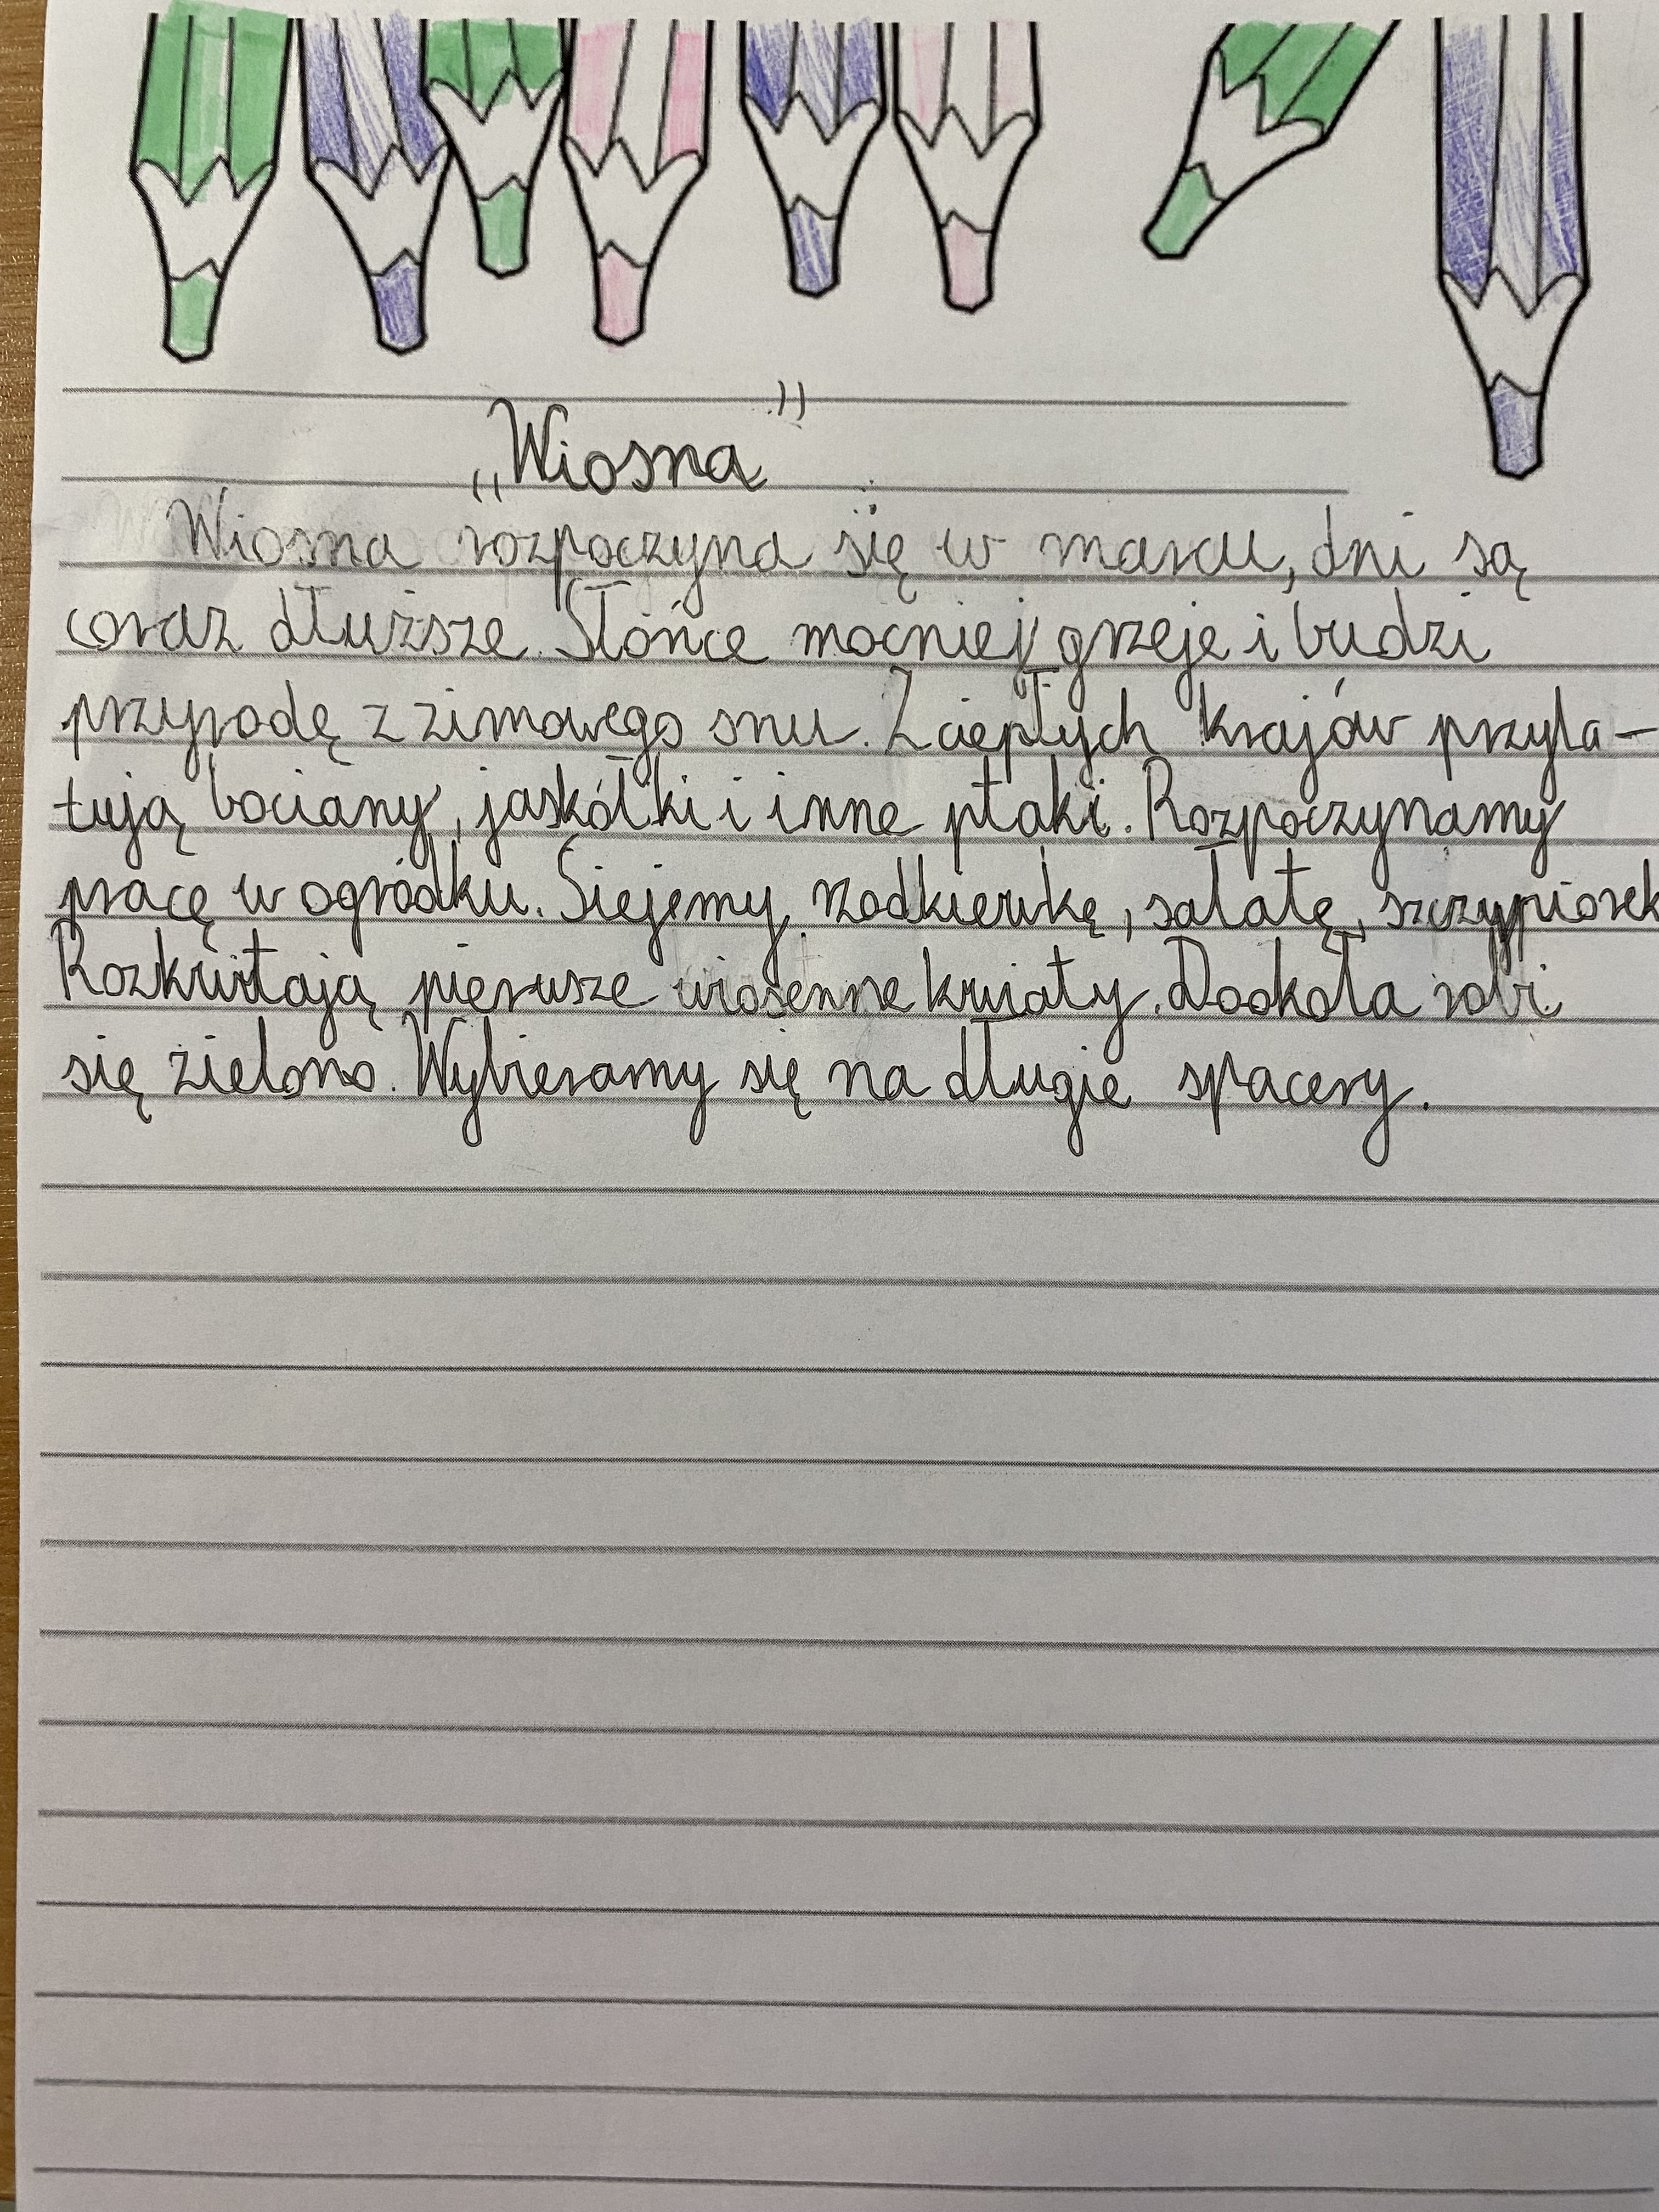 „Wiosna”
Wiosna rozpoczyna się w marcu, dni są
coraz dłuższe. Słońce mocniej grzeje i budzi
przyrodę z zimowego snu. Z ciepłych krajów przyla-
tują bociany, jaskółki i inne ptaki. Rozpoczynamy
pracę w ogródku. Siejemy rzodkiewkę, sałatę, szczypiorek
Rozkwitają pierwsze wiosenne kwiaty. Dookoła robi
się zielono. Wybieramy się na długie spacery.